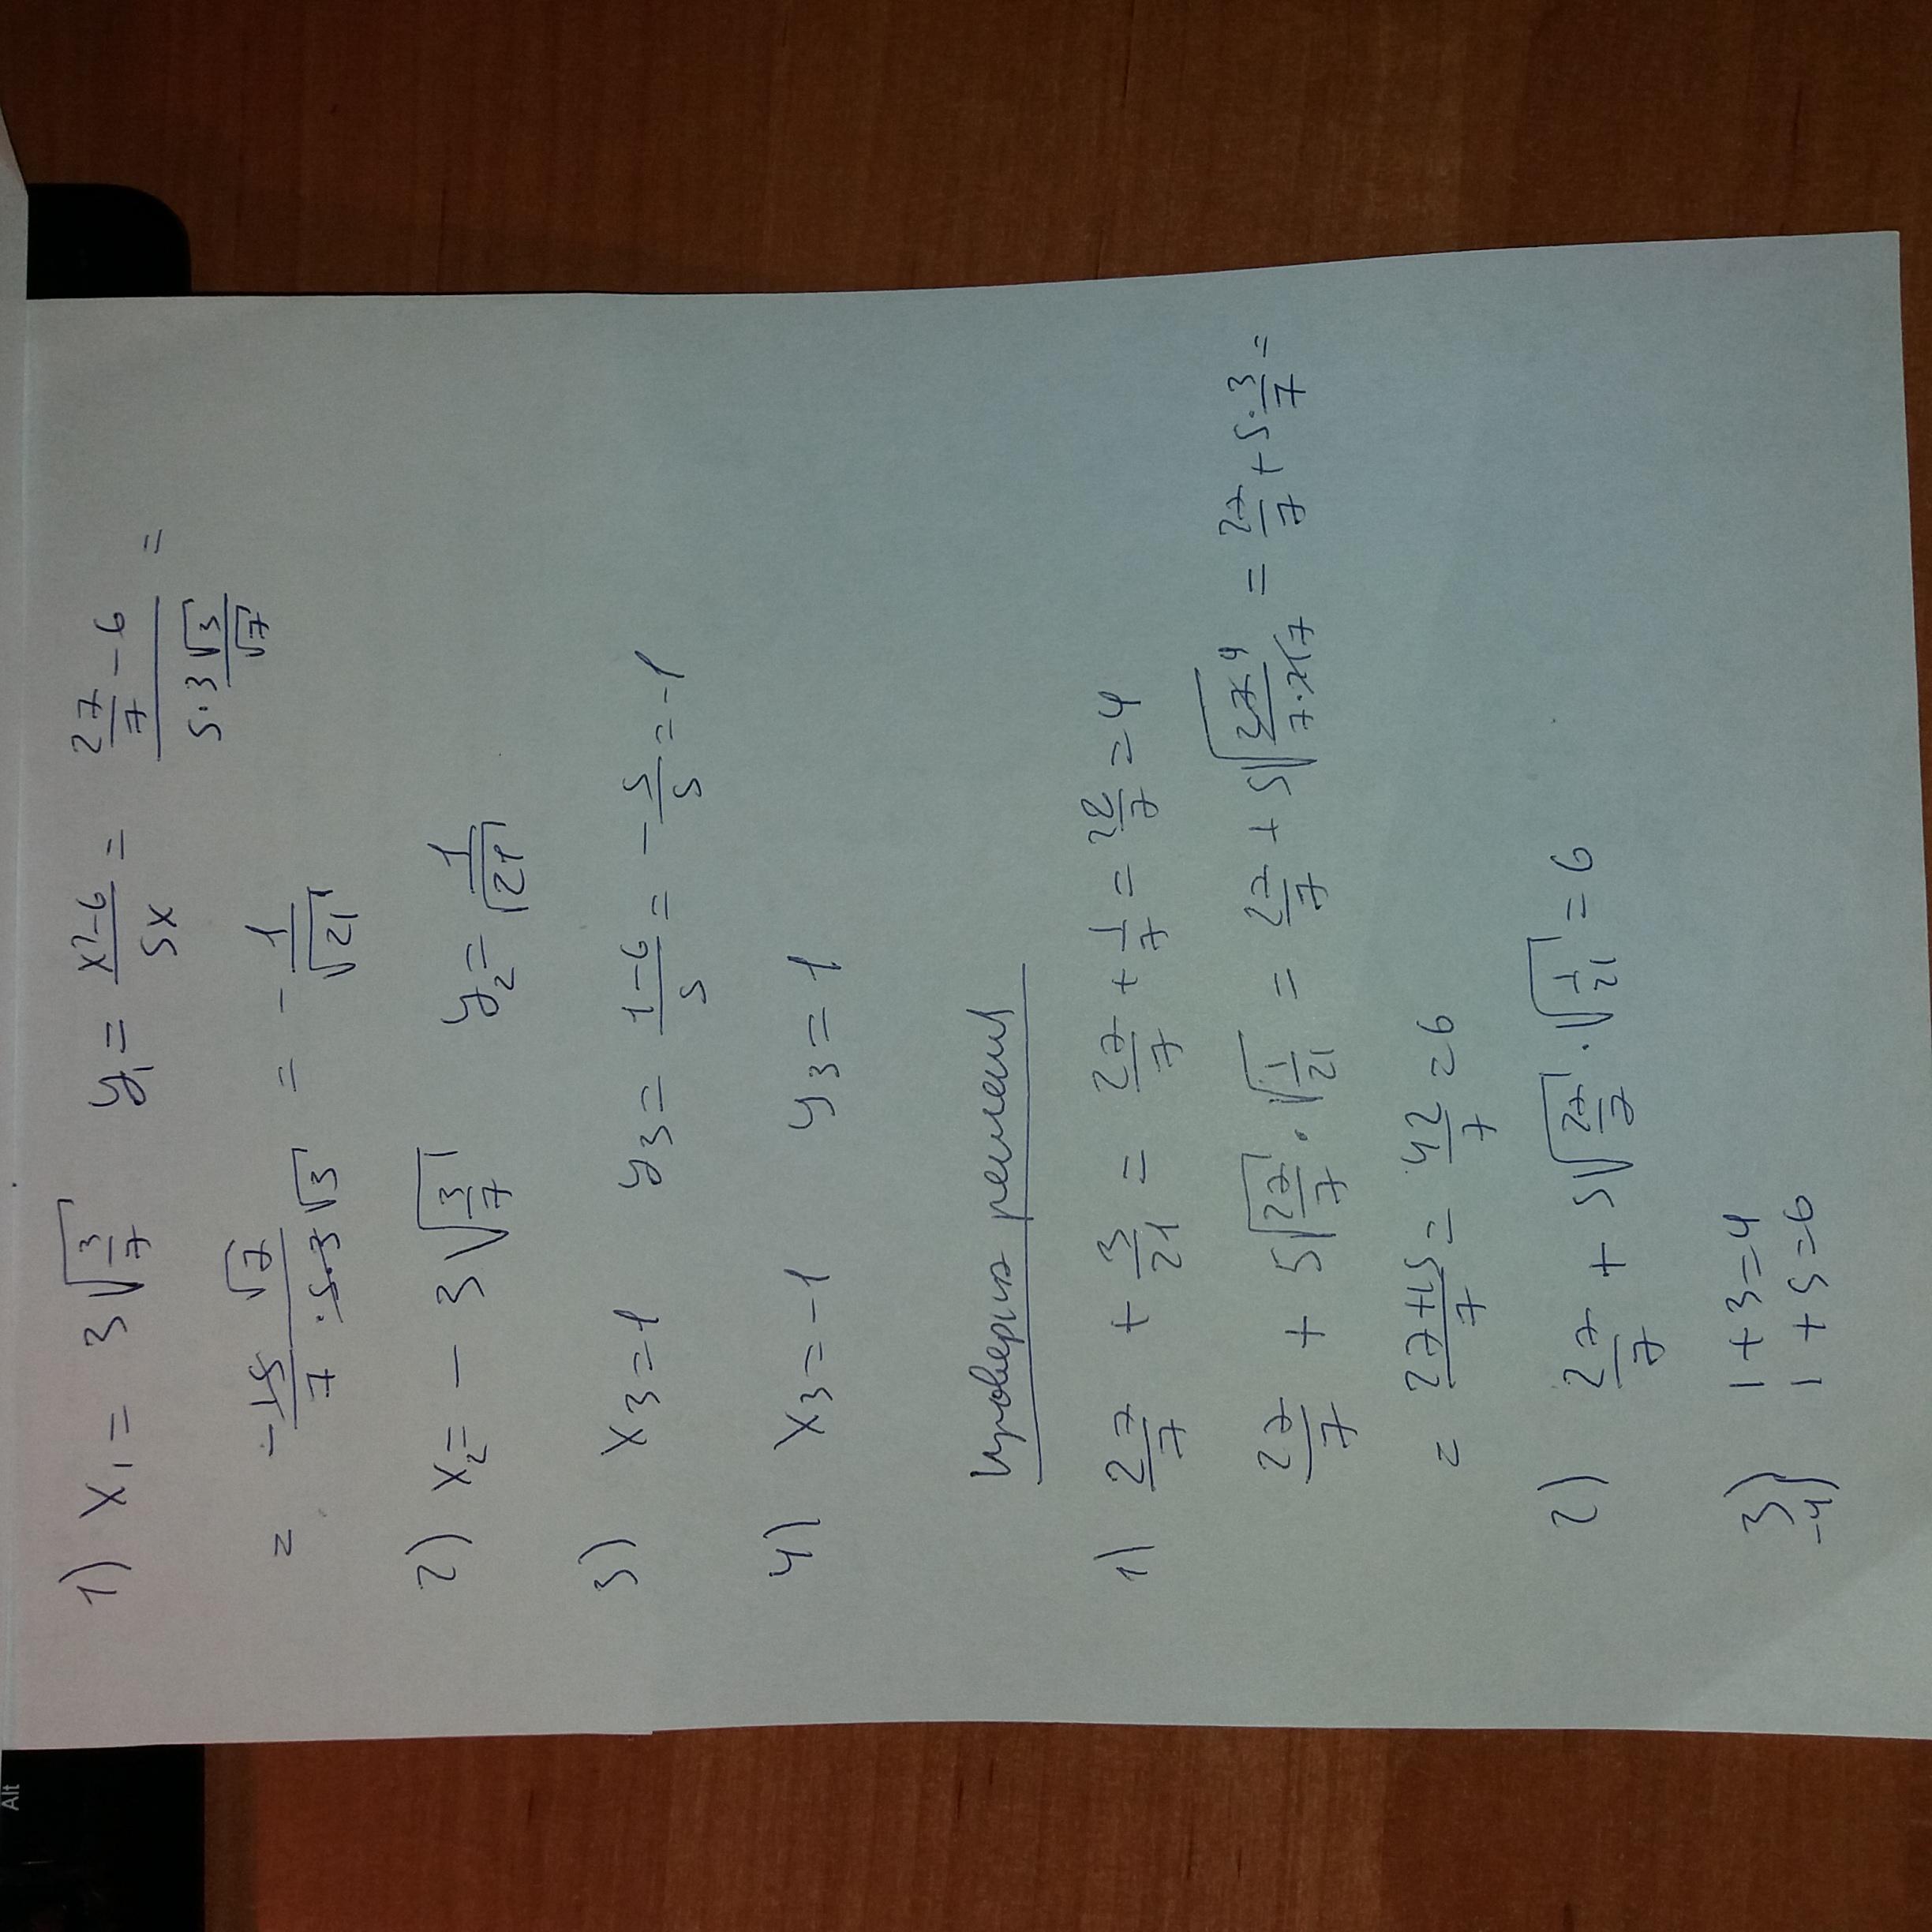 1) x₁ = 3√(3/7) y₁ = (x²-6)/(5x) = (27/7 - 6)/(5·3 √3/√7) =
= -15/7 · √7/(5·3√3) = -1/√21
2) x₂ = -3√(3/7) y₂ = 1/√21
3) x₃ = 1 y₃ = (1-6)/5 = -5/5 = -1
4) x₃ = -1 y₃ = 1
Проверка решения
1) 27/7 + 3/21 = 27/7 + 1/7 = 28/7 = 4
27/7 + 5√(27/7) · √(1/21) = 27/7 + 5√(27 9/(7·21 7)) = 27/7 + 5·3/7 =
= (27+15)/7 = 42/7 = 6
2) 27/7 + 5√(27/7) · √(1/21) = 6
3) 1+3=4
-4) 1+5=6
Alt